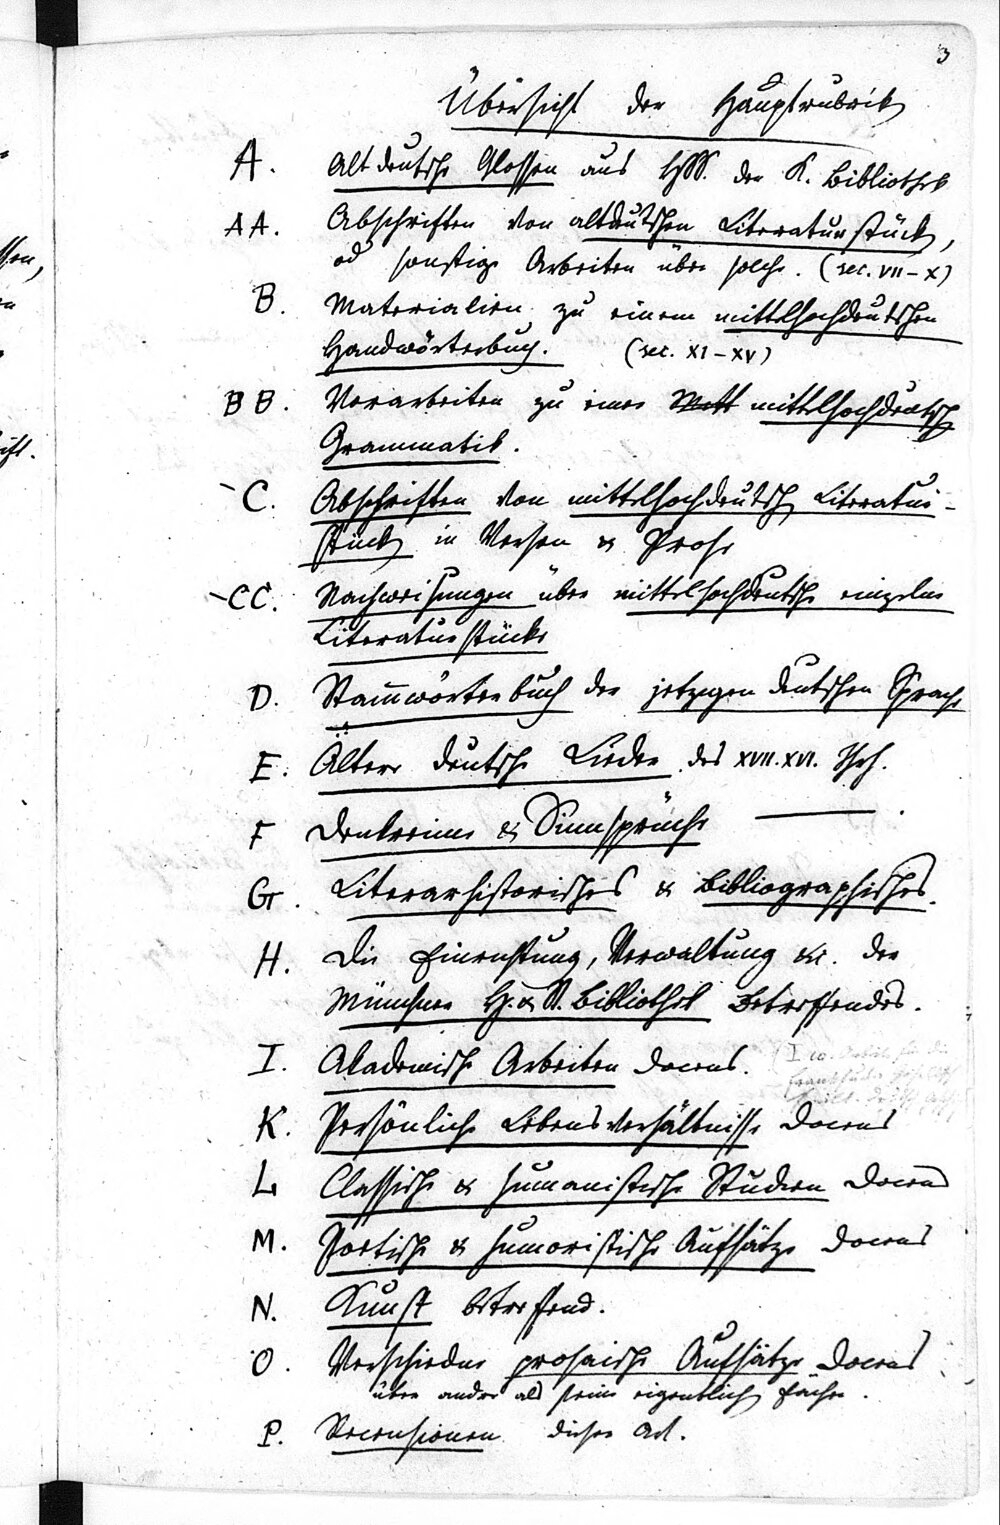 3
Übersicht der Hauptrubrik
A. Altdeutsche Glossen aus HSS. der K. Bibliothek
AA. Abschriften von altdeutschen Literaturstück,
od sonstige Arbeiten über solche. (sec. VII-X)
B. Materialien zu einem mittelhochdeutschen
Handwörterbuch. (sec. XI-XV)
BB. Vorarbeiten zu einer mittelhochdeutsch
Grammatik.
C. Abschriften von mittelhochdeutsch Literatur-
stück in Versen & Prose
CC. Nachweisungen über mittelhochdeutsche einzelne
Literaturstücke
D. Stam̄wörterbuch der jetzigen deutschen Sprache
E. Ältere deutsche Lieder des XVII. XVI. Jhrh.
F Denkreime & Sinnsprüche ———.
G. Literarhistorisches & Bibliographisches.
H. Die Einrichtung, Verwaltung &c. der
Münchner H. & St. Bibliothek Betreffendes.
I. Akademische Arbeiten Docens.
K. Persönliche Lebensverhältnisse Docens
L Classische & humanistische Studien Docens
M. Poetische & humoristische Aufsätze Docens
N. Kunst betreffend.
O. Verschiedne prosaische Aufsätze Docens
über andre als seine eigentlich Fächer.
P. Recensionen dieser Art.